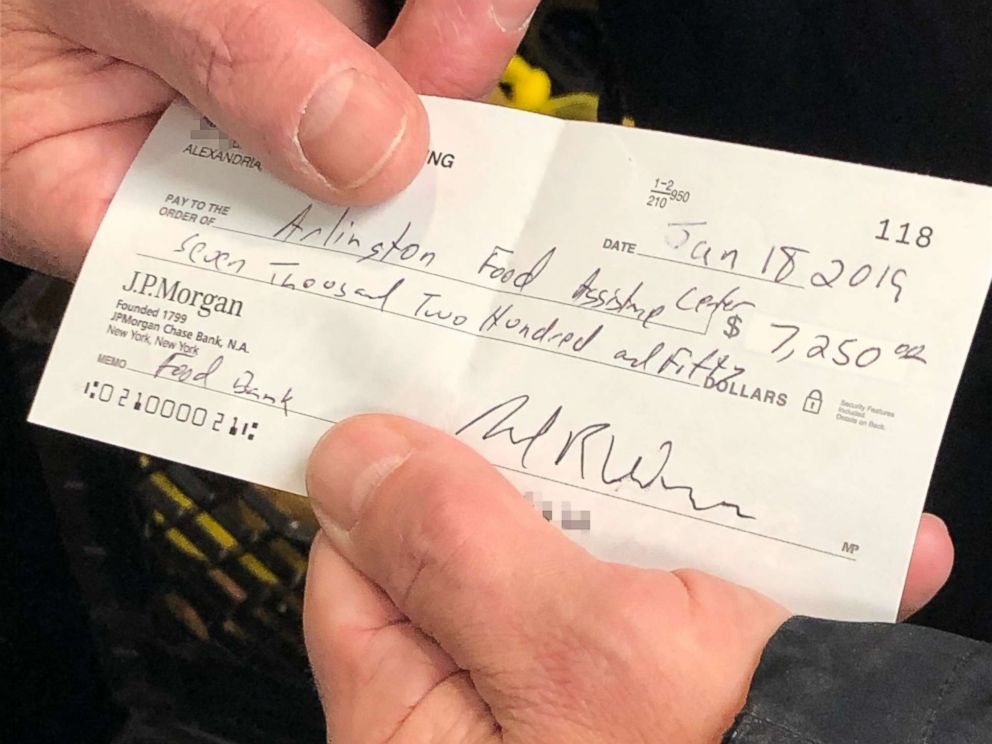 ALEXANDRIA
NG
1-2
210 950
118
DATE Jan 18 2019
PAY TO THE
ORDER OF Arlington Food Assistance Center
$ 7,250 00
Seven Thousand Two Hundred and Fifty DOLLARS
Security Features
Included.
Details on Back.
J.P.Morgan
Founded 1799
JPMorgan Chase Bank, N.A.
New York, New York
MEMO Food Bank
MP
⑆021000021⑆